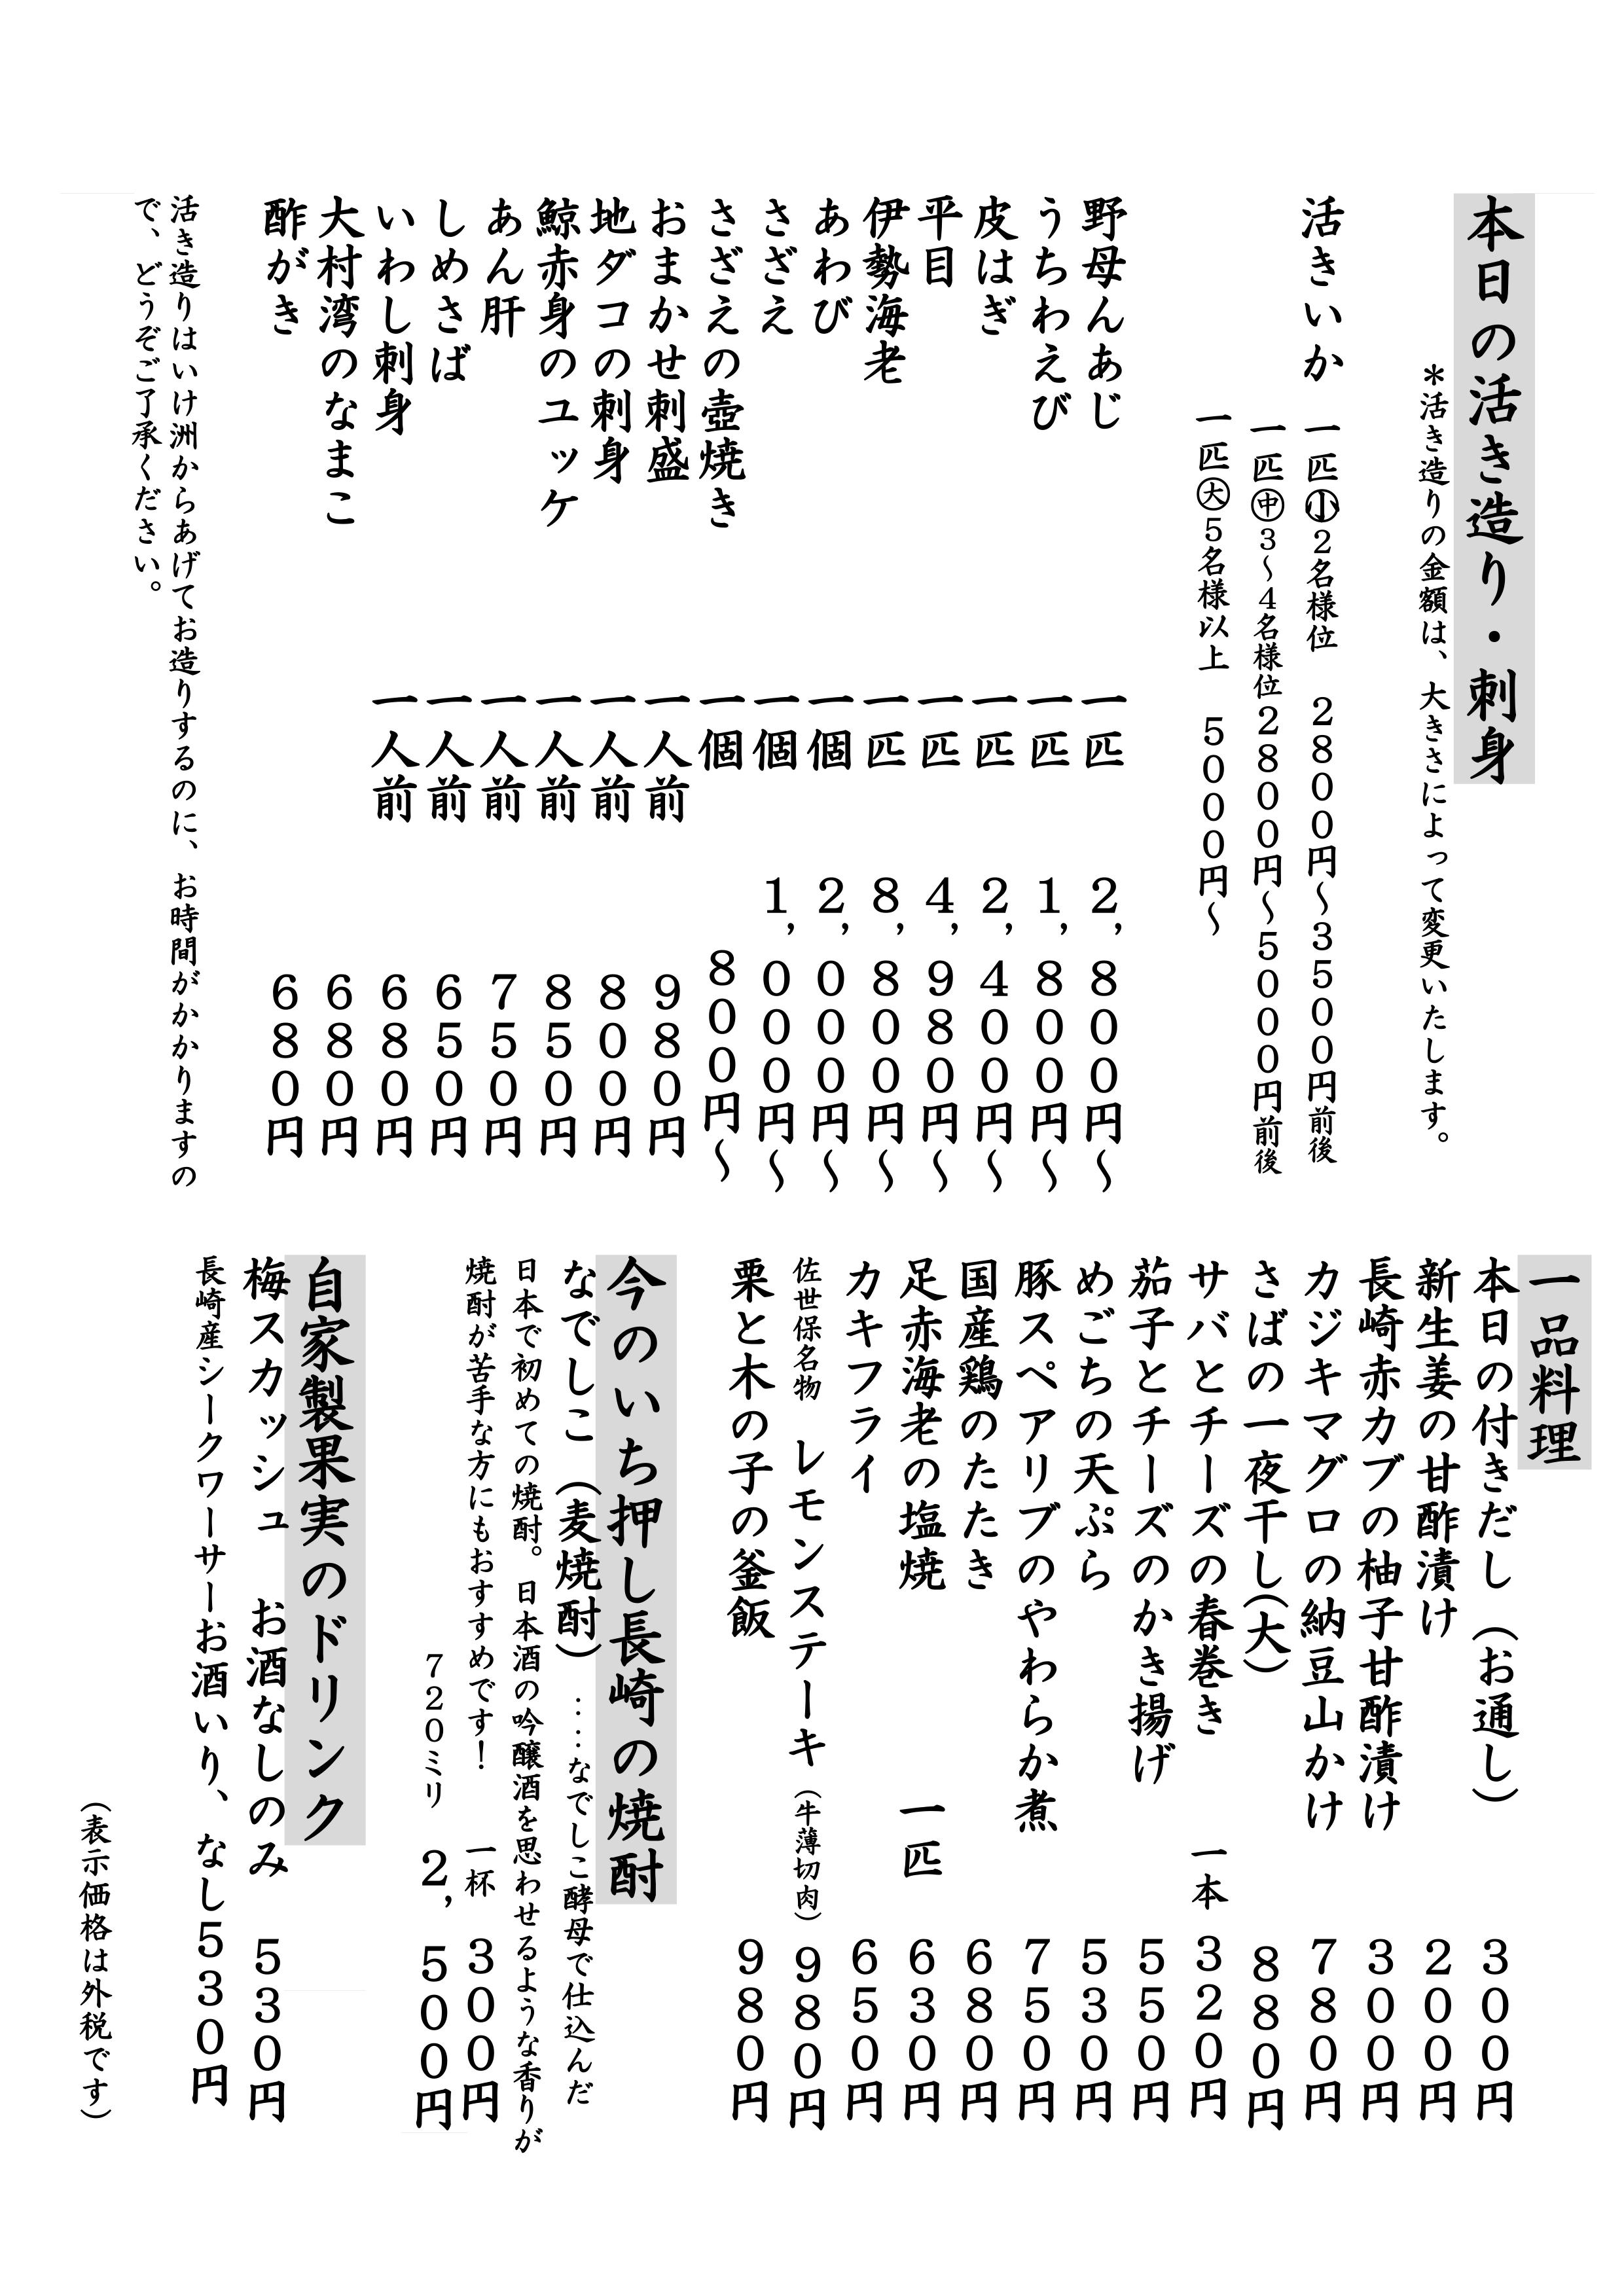 本日の活き造り・刺身
＊活き造りの金額は、大きさによって変更いたします。
活きいか 一匹㊙小2名様位 2800円～3500円前後
一匹㊥3～4名様位2800円～5000円前後
一匹大5名様以上 5000円～
野母んあじ 一匹 2,800円～
うちわえび 一匹 1,800円～
皮はぎ 一匹 2,400円～
平目 一匹 4,980円～
伊勢海老 一匹 8,800円～
あわび 一個 2,000円～
さざえ 一個 1,000円～
さざえの壺焼き 一個 800円～
おまかせ刺盛 一人前 980円
地ダコの刺身 一人前 800円
鯨赤身のユッケ 一人前 850円
あん肝 一人前 750円
しめさば 一人前 650円
いわし刺身 一人前 680円
大村湾のなまこ 680円
酢がき 680円
活き造りはいけ洲からあげてお造りするのに、お時間がかかりますの
で、どうぞご了承ください。
一品料理
本日の付きだし（お通し） 300円
新生姜の甘酢漬け 200円
長崎赤カブの柚子甘酢漬け 300円
カジキマグロの納豆山かけ 780円
さばの一夜干し（大） 880円
サバとチーズの春巻き 一本 320円
茄子とチーズのかき揚げ 550円
めごちの天ぷら 530円
豚スペアリブのやわらか煮 750円
国産鶏のたたき 680円
足赤海老の塩焼 一匹 630円
カキフライ 650円
佐世保名物 レモンステーキ（牛薄切肉） 980円
栗と木の子の釜飯 980円
今のいち押し長崎の焼酎
なでしこ（麦焼酎）‥‥なでしこ酵母で仕込んだ
日本で初めての焼酎。日本酒の吟醸酒を思わせるような香りが
焼酎が苦手な方にもおすすめです！ 一杯 300円
720ミリ 2,500円
自家製果実のドリンク
梅スカッシュ お酒なしのみ 530円
長崎産シークワーサーお酒いり、なし530円
（表示価格は外税です）